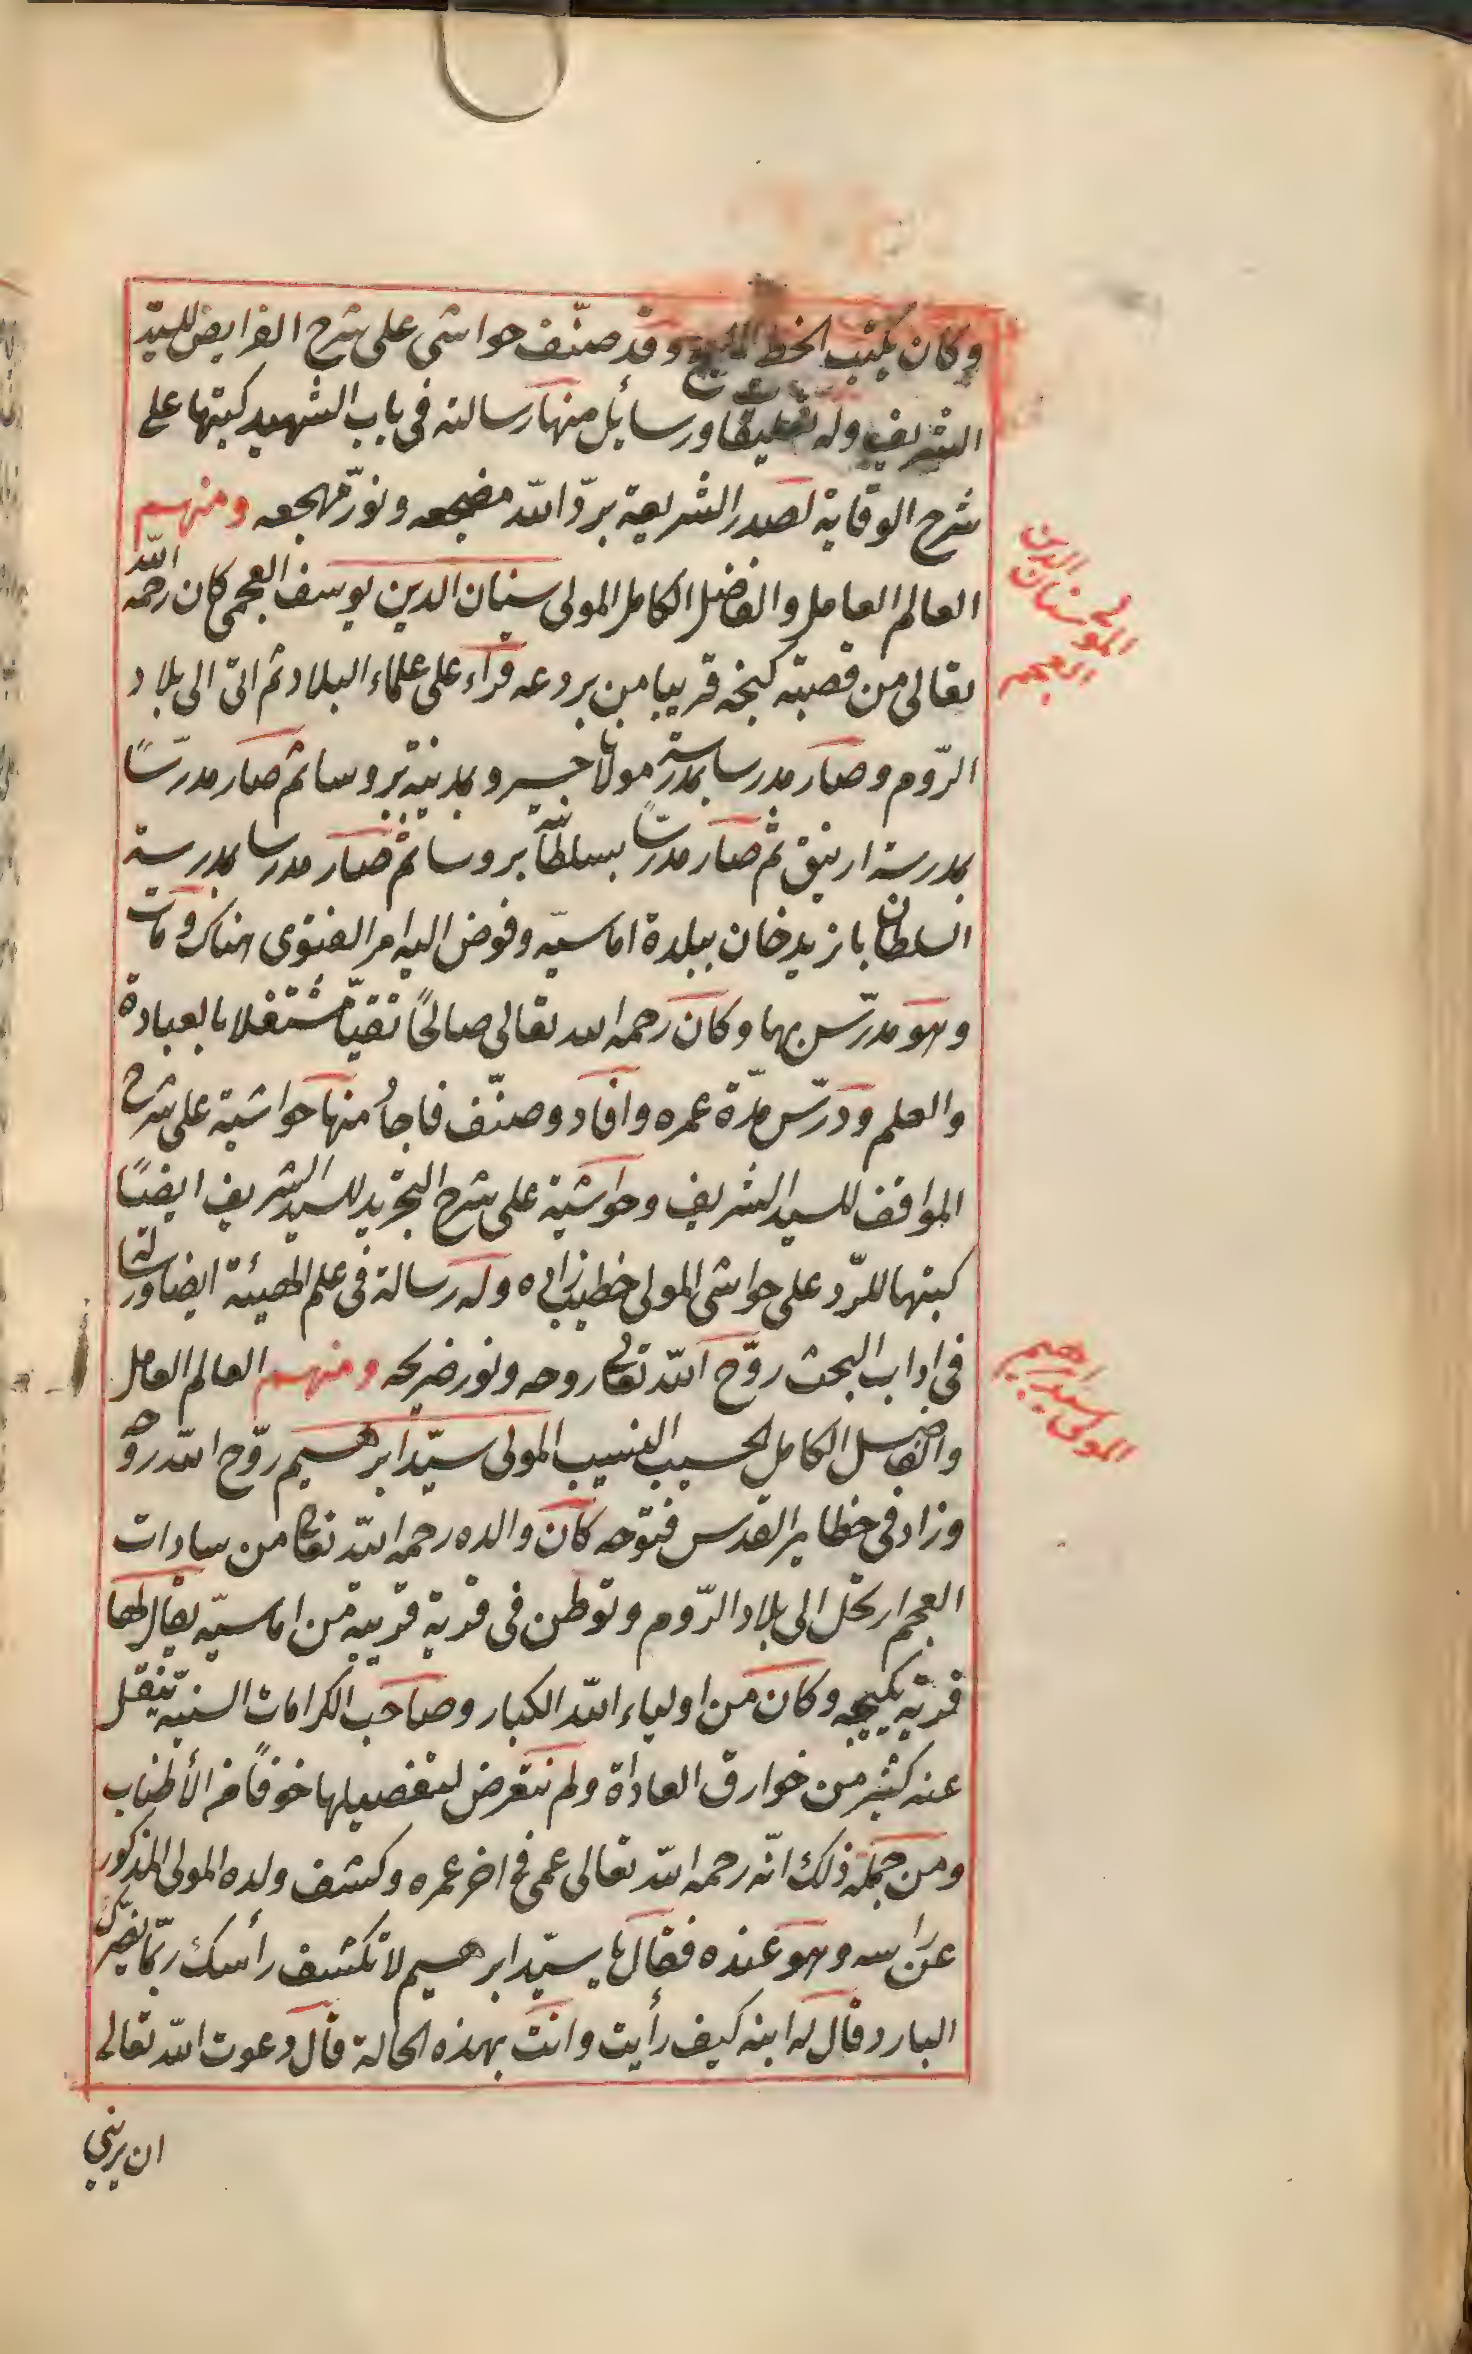 وكان يكتب الخط المليح وقد صنّف حواشى على شرح الفرايض للسيّد
الشريف وله تعليقات ورسائل منها رسالته فى باب الشهيد كتبتها على
شرح الوقاية لصدر الشريعة برّد اللّه مضجعه ونوّر مهجعه ومنهم
العالم العامل والفاضل الكامل المولى سنان الدين يوسف العجمى كان رحمه اللّه
المولى سنان الدين العجمى
تعالى من قصبته كنجه قريبا من بردعه قرآء على علماء البلاد ثم اتى الى بلاد
الرّوم وصار مدرسا بمدرسة مولانا خسرو بمدينة بروسا ثم صار مدرّسًا
بمدرسة ازنيق ثم صار مدرّسًا بسلطانيّة بروسا ثم صار مدرسا بمدرسة
السلطان بايزيدخان ببلدة اماسيّه وفوض اليه امر الفتوى هناك ومات
وهو مدرّس بها وكان رحمه الله تعالى صالحًا تقيّا مشتغلا بالعبادة
والعلم ودرّس مدّة عمره وافاد وصنّف فاجاد منها حواشية على شرح
المواقف للسيد الشريف وحواشية على شرح التجريد للسيد الشريف ايضًا
كتبتها للرّد على حواشى المولى خطيب زاده وله رسالة فى علم الهيئة ايضا ورسالة
فى اداب البحث روّح اللّه تعالى روحه ونور ضريحه ومنهم العالم العامل
المولى سيد ابرهيم
والفاضل الكامل الحسيب النسيب المولى سيّد ابرهيم روّح اللّه روحه
وزاد فى حظاير القدس فتوحه كان والده رحمه اللّه تعالى من سادات
العجم ارتحل الى بلاد الرّوم وتوطن فى قرية قريبة من اماسيّه يقال لها
قرية يكيجه وكان من اولياء اللّه الكبار وصاحب الكرامات السنيّة ينقل
عنه كثير من خوارق العاداة ولم نتعرض لتفصيلها خوفًا من الأطناب
ومن جملة ذلك انّه رحمه اللّه تعالى عمى فى اخر عمره وكشف ولده المولى المذكور
عن راسه وهو عنده فقال يا سيّد ابرهيم لا تكشف رأسك ربّما يضرّك
البارد وقال له ابنه كيف رأيت وانت بهذه الحالة قال دعوت اللّه تعالى
ان يرينى